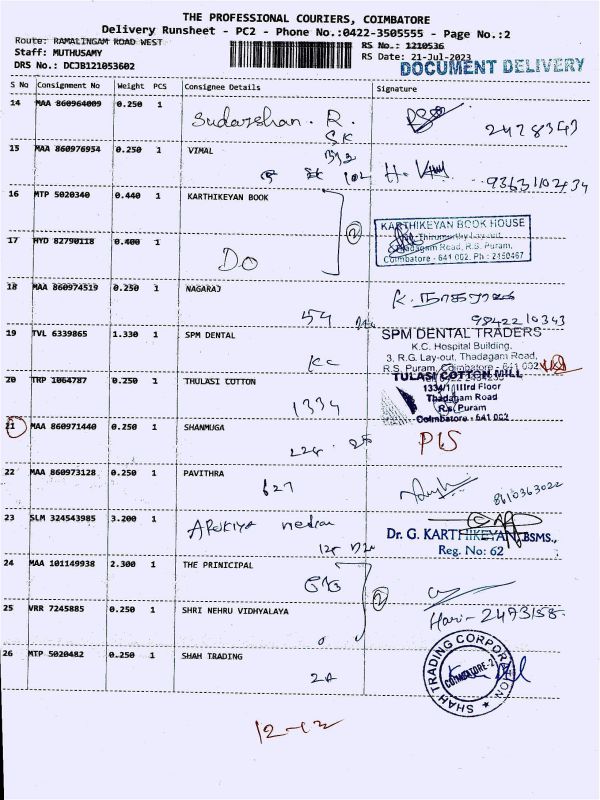 THE PROFESSIONAL COURIERS, COIMBATORE
Delivery Runsheet - PC2 - Phone No.:0422-3505555 - Page No.:2
Route: RAMALINGAM ROAD WEST
RS No.: 1210536
Staff: MUTHUSAMY
RS Date: 21-Jul-2023
DRS No.: DCJB121053602
DOCUMENT DELIVERY
S No Consignment No Weight PCS Consignee Details Signature
14 MAA 860964009 0.250 1 Sudarshan. R.
SK
2478343
15 MAA 860976954 0.250 1 VIMAL
102
9363110234
16 MTP 5020340 0.440 1 KARTHIKEYAN BOOK
2
KARTHIKEYAN BOOK HOUSE
Thirumurthy Lay-out,
Thadagam Road, R.S. Puram,
Coimbatore - 641 002. Ph : 2450467
17 HYD 82790118 0.400 1
DO
18 MAA 860974519 0.250 1 NAGARAJ
54
K. நாகராஜ்
9842210343
19 TVL 6339865 1.330 1 SPM DENTAL
KC
SPM DENTAL TRADERS
K.C. Hospital Building,
3, R.G. Lay-out, Thadagam Road,
R.S. Puram, Coimbatore - 641 002
20 TRP 1064787 0.250 1 THULASI COTTON
1334
TULASI COTTON MILL
1334/1 IIIrd Floor
Thadagam Road
R.S. Puram
Coimbatore - 641 002
21 MAA 860971440 0.250 1 SHANMUGA
PIS
22 MAA 860973128 0.250 1 PAVITHRA
627
8610363022
23 SLM 324543985 3.200 1
Dr. G. KARTHIKEYAN, BSMS.,
Reg. No: 62
24 MAA 101149938 2.300 1 THE PRINICIPAL
2
25 VRR 7245885 0.250 1 SHRI NEHRU VIDHYALAYA
Hari - 2473158
26 MTP 5020482 0.250 1 SHAH TRADING
2A
SHAH TRADING CORPORATION
COIMBATORE-2
12-12